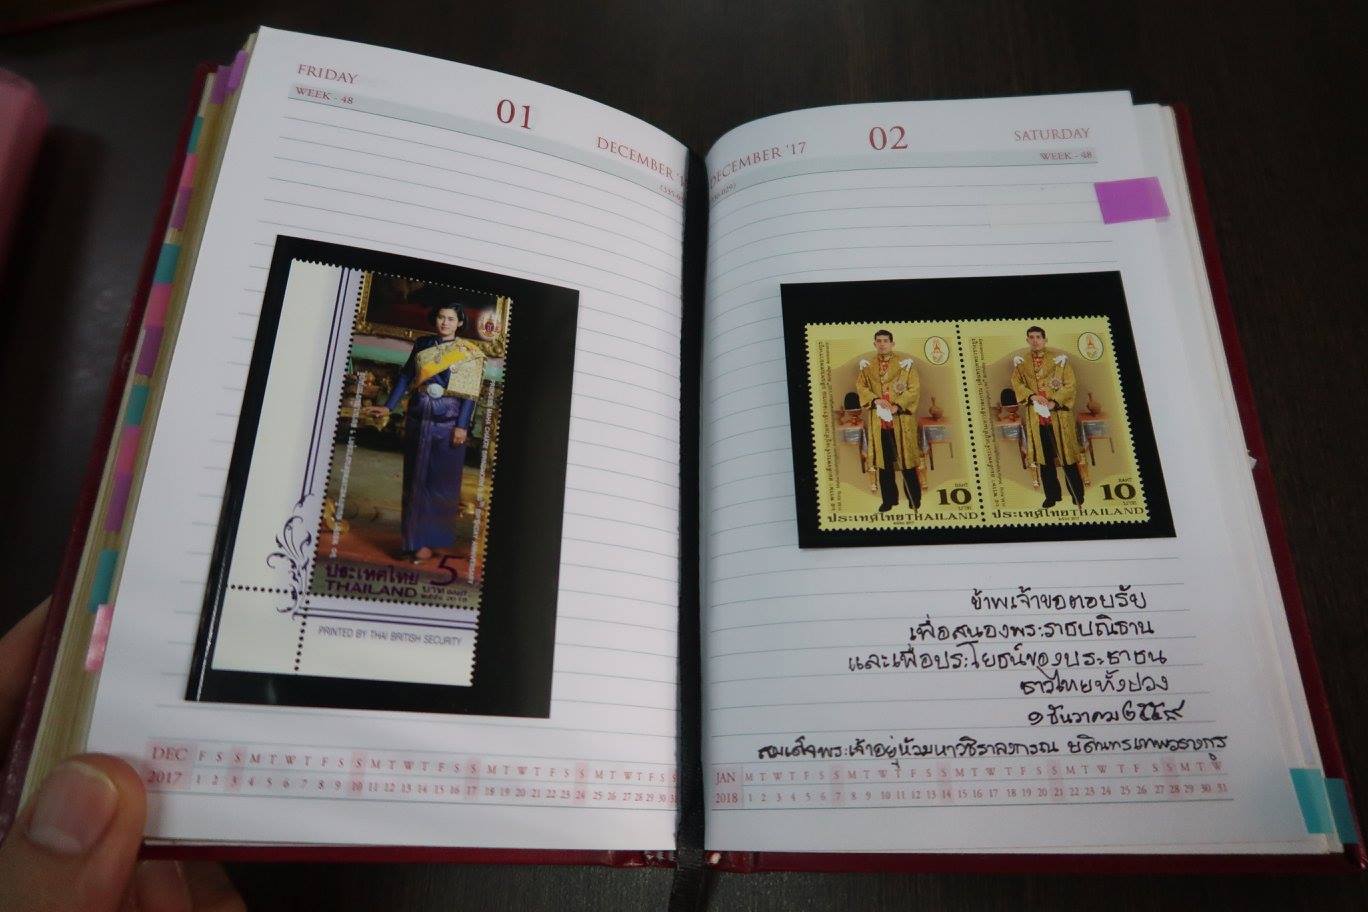 FRIDAY
WEEK - 48
01
DECEMBER '1
ประเทศไทย 5
THAILAND บาท BAHT
PRINTED BY THAI BRITISH SECURITY
DEC F S S M T W T F S S M T W T F S S M T W T F S S M T W T F S S
2017 1 2 3 4 5 6 7 8 9 10 11 12 13 14 15 16 17 18 19 20 21 22 23 24 25 26 27 28 29 30 31
DECEMBER '17
02
SATURDAY
WEEK - 48
BAHT
10
บาท
ประเทศไทย THAILAND
BAHT
10
บาท
ประเทศไทย THAILAND
ข้าพเจ้าขอตอบรับ
เพื่อสนองพระราชปณิธาน
และเพื่อประโยชน์ของประชาชน
ชาวไทยทั้งปวง
๑ ธันวาคม ๒๕๕๙
สมเด็จพระเจ้าอยู่หัวมหาวชิราลงกรณ บดินทรเทพยวรางกูร
JAN M T W T F S S M T W T F S S M T W T F S S M T W T F S S M T W
2018 1 2 3 4 5 6 7 8 9 10 11 12 13 14 15 16 17 18 19 20 21 22 23 24 25 26 27 28 29 30 31